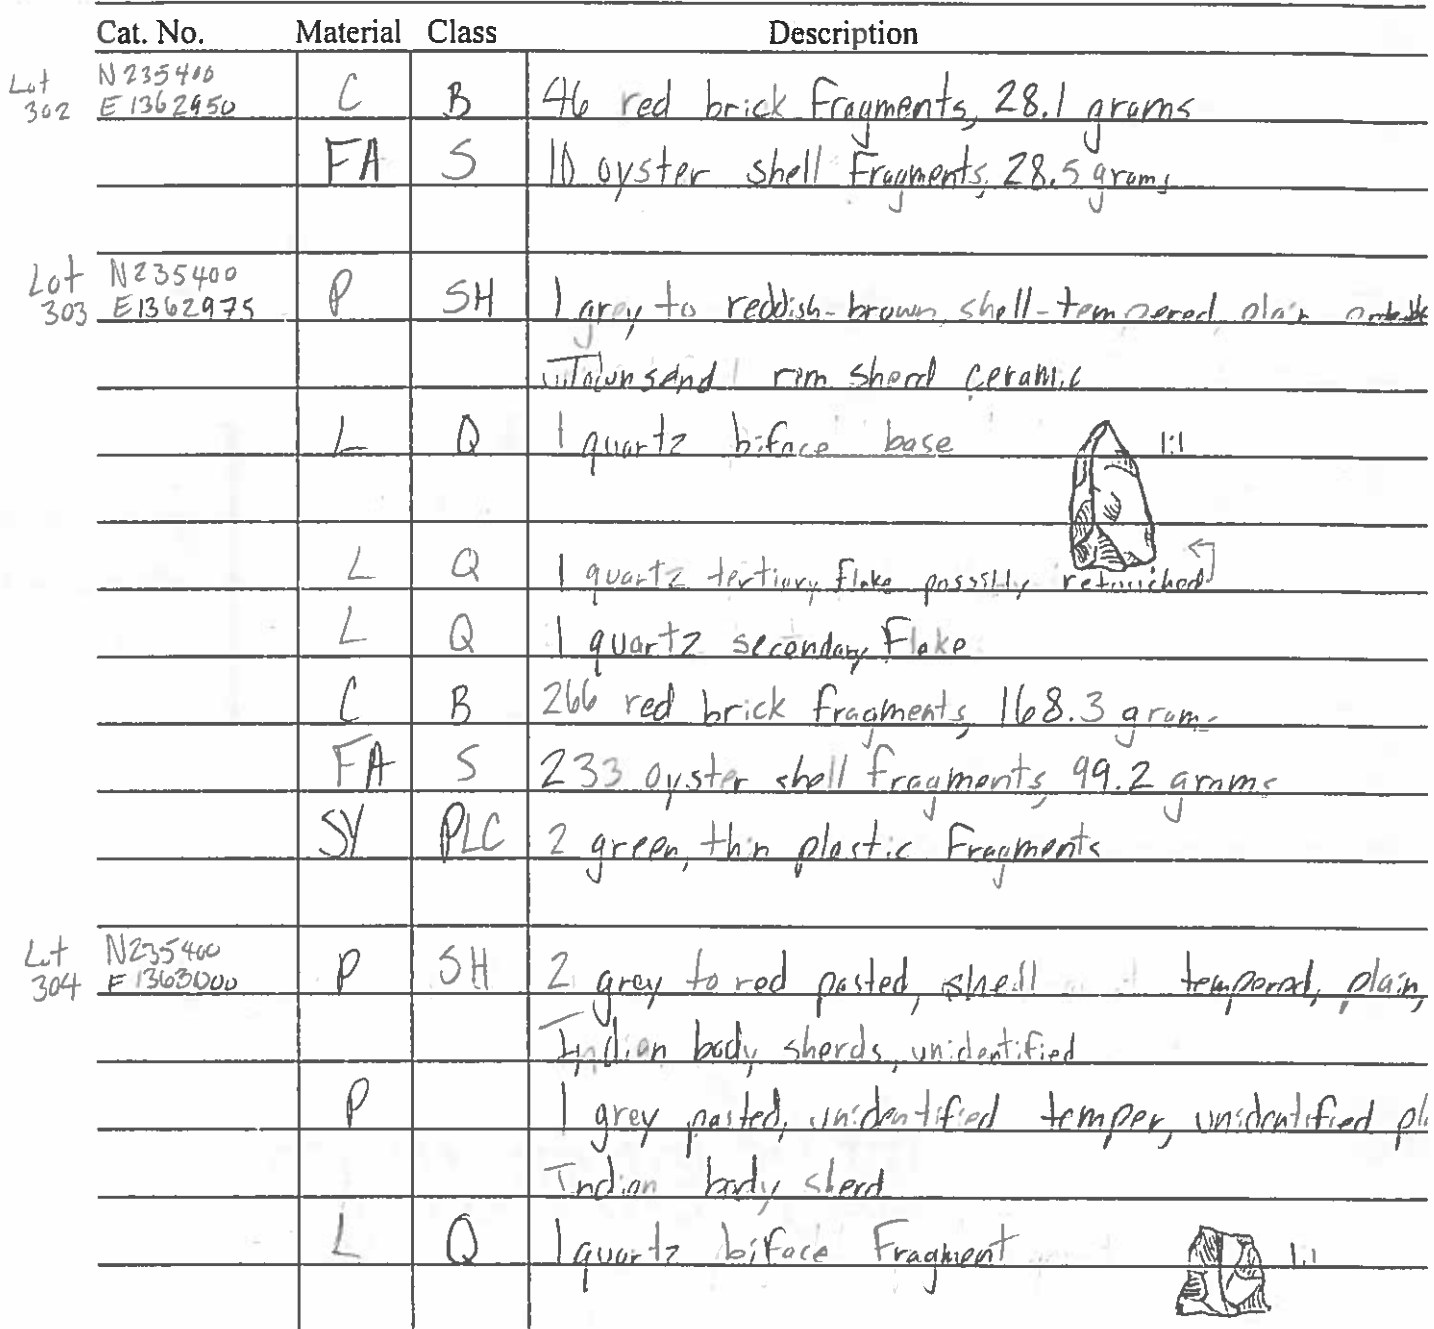 Cat. No. Material Class Description
Lot 302 N235400 E1362950 C B 46 red brick fragments, 28.1 grams
FA S 10 oyster shell fragments, 28.5 grams
Lot 303 N235400 E1362975 P SH 1 grey to reddish-brown, shell-tempered, plain
Townsand rim sherd ceramic
L Q 1 quartz biface base 1:1
L Q 1 quartz tertiary flake possibly retouched
L Q 1 quartz secondary flake
C B 266 red brick fragments, 168.3 grams
FA S 233 oyster shell fragments, 99.2 grams
SY PLC 2 green, thin plastic fragments
Lot 304 N235400 E1363000 P SH 2 grey to red pasted, shell tempered, plain,
Indian body sherds, unidentified
P 1 grey pasted, unidentified temper, unidentified
Indian body sherd
L Q 1 quartz biface fragment 1:1